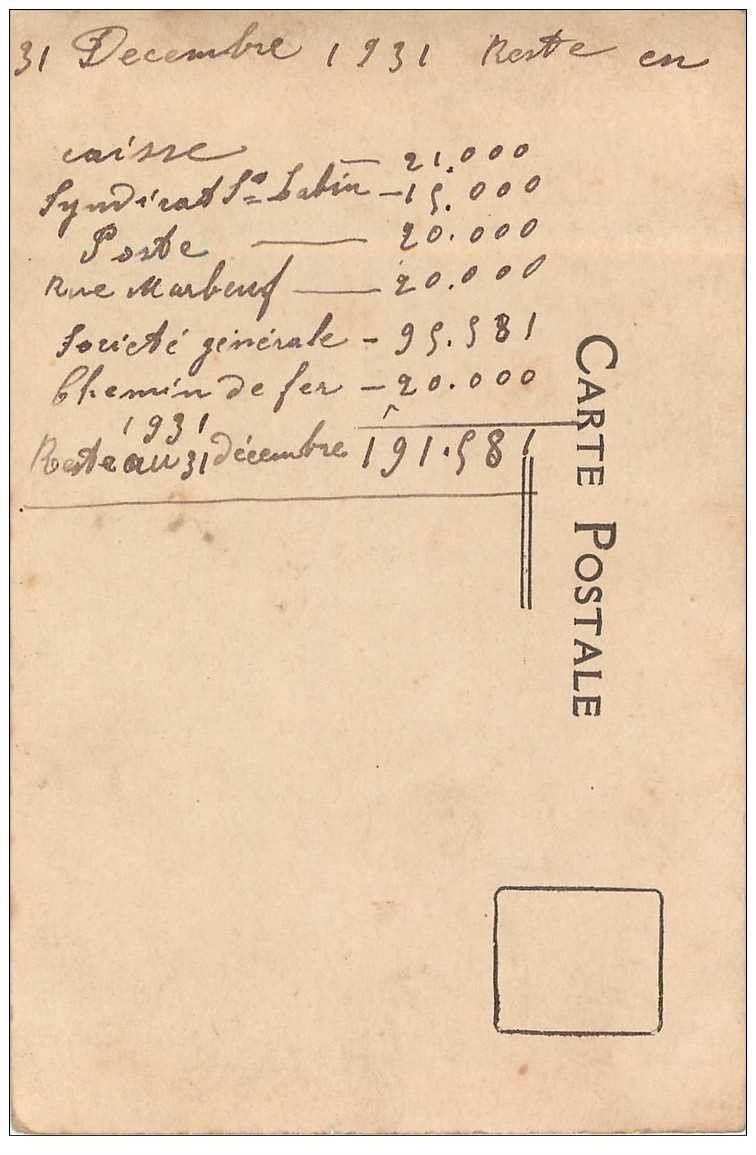 31 Decembre 1931 Reste en
caisse — 21.000
Syndicat St= Sabin - 15.000
Poste — 20.000
Rue Marbeuf — 20.000
Société générale - 95.581
Chemin de fer - 20.000
1931
Reste au 31 décembre 191.581
CARTE POSTALE